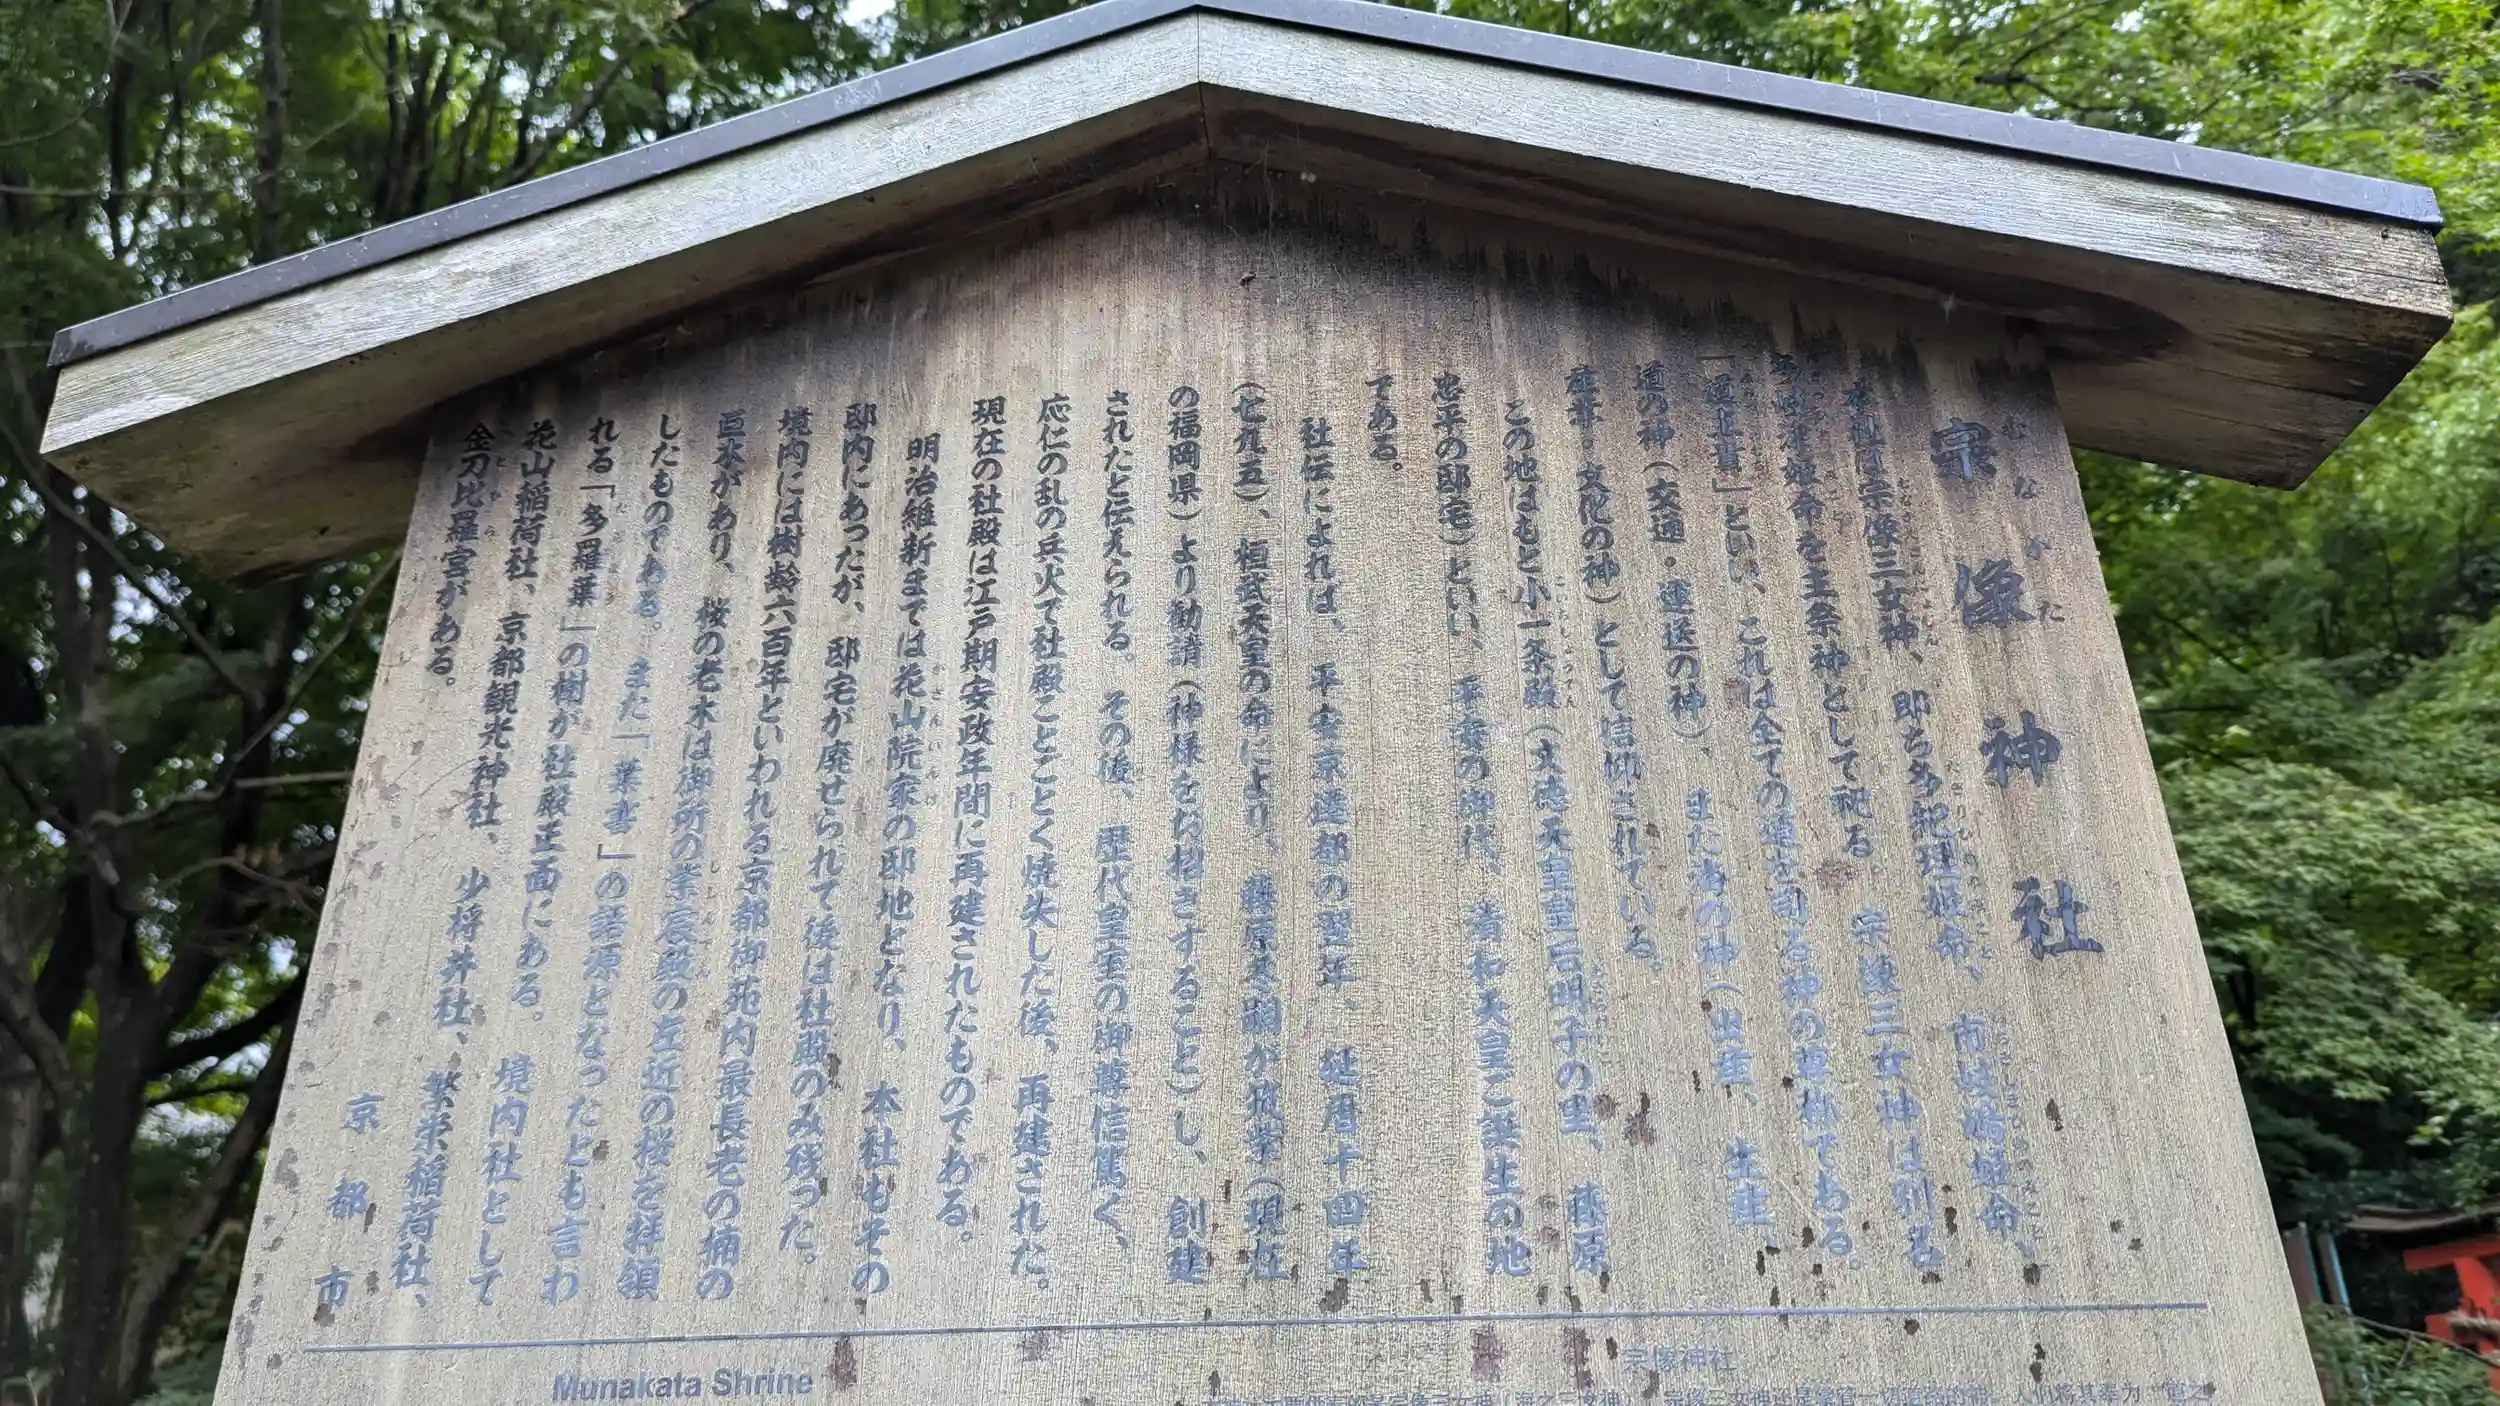 宗像神社
むなかた
本社は宗像三女神、即ち多紀理姫命、市岐嶋姫命、
多岐津姫命を主祭神として祀る。宗像三女神は別名
「道主貴」といい、これは全ての道を司る神の尊称である。
道の神（交通・運送の神）、また海の神（出産、生産、
産業・文化の神）として信仰されている。
この地はもと小一条殿（文徳天皇皇后明子の里、藤原
忠平の邸宅）といい、平安の御代、清和天皇ご誕生の地
である。
社伝によれば、平安京遷都の翌年、延暦十四年
（七九五）、桓武天皇の命により、藤原冬嗣が筑紫（現在
の福岡県）より勧請（神様をお招きすること）し、創建
されたと伝えられる。その後、歴代皇室の御尊信篤く、
応仁の乱の兵火で社殿ことごとく焼失した後、再建された。
現在の社殿は江戸期安政年間に再建されたものである。
明治維新までは花山院家の邸地となり、本社もその
邸内にあったが、邸宅が廃せられて後は社殿のみ残った。
境内には樹齢六百年といわれる京都御苑内最長老の楠の
巨木があり、桜の老木は御所の紫宸殿の左近の桜を拝領
したものである。また「葉書」の語源となったとも言わ
れる「多羅葉」の樹が社殿正面にある。境内社として
花山稲荷社、京都観光神社、少将井社、繁栄稲荷社、
金刀比羅宮がある。
京都市
Munakata Shrine
宗像神社